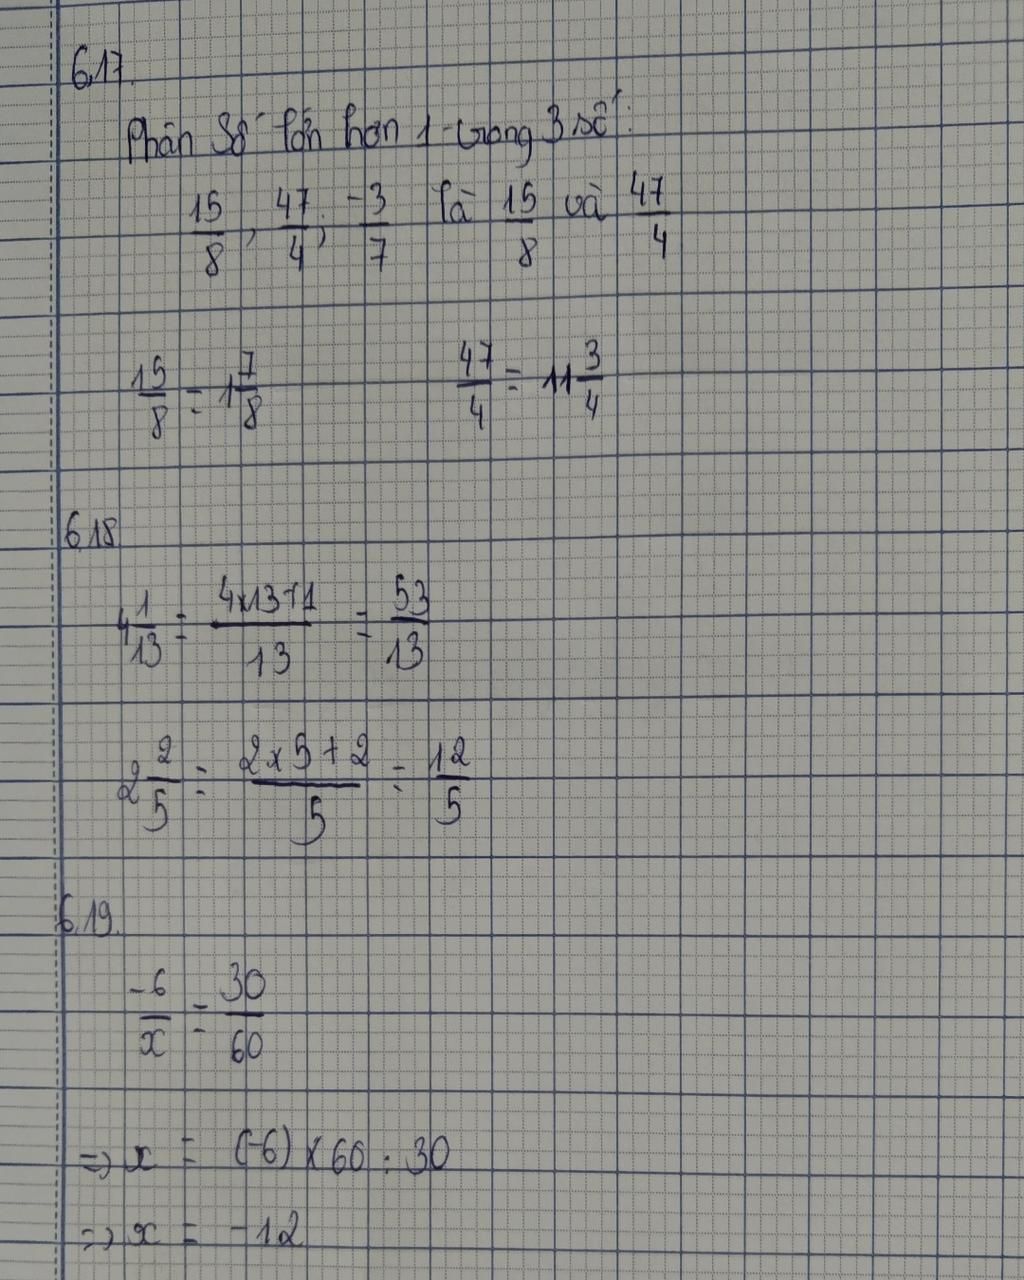 6.17.
Phân số lớn hơn 1 trong 3 số:
15/8, 47/4; -3/7 là 15/8 và 47/4
15/8 = 1 7/8 47/4 = 11 3/4
6.18
4 1/13 = (4x13+1)/13 = 53/13
2 2/5 = (2x5+2)/5 = 12/5
6.19.
-6/x = 30/60
=> x = (-6) x 60 : 30
=> x = -12